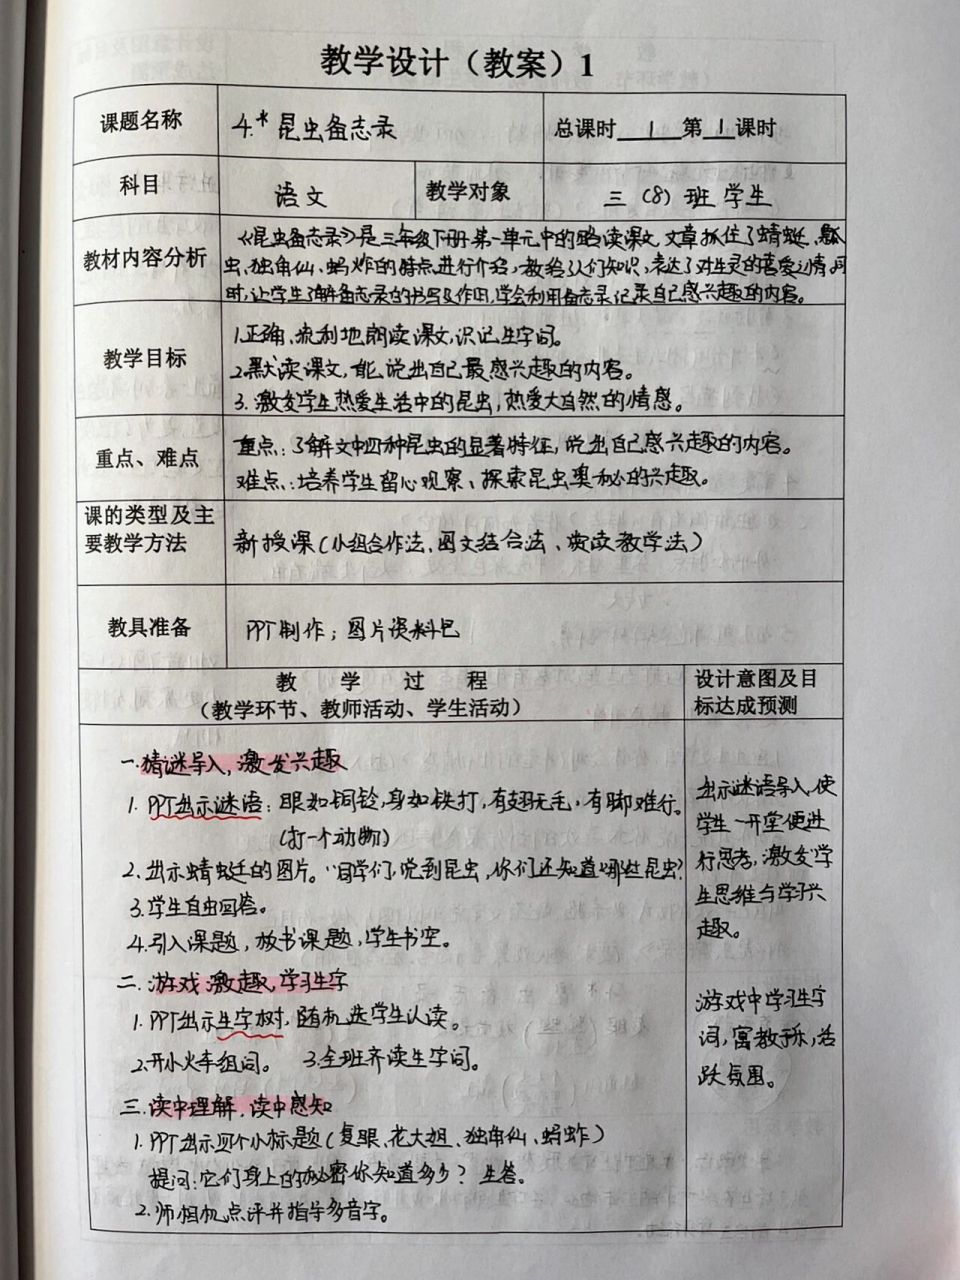 教学设计（教案）1
课题名称 4.*昆虫备志录 总课时 1 第 1 课时
科目 语文 教学对象 三（8）班 学生
教材内容分析
《昆虫备志录》是三年级下册第一单元中的略读课文,文章抓住了蜻蜓、瓢
虫、独角仙、蚂蚱的特点进行介绍,教给了人们知识,表达了对生灵的喜爱之情。同
时,让学生了解备志录的书写及作用,学会利用备志录记录自己感兴趣的内容。
教学目标
1.正确、流利地朗读课文,识记生字词。
2.默读课文,能说出自己最感兴趣的内容。
3.激发学生热爱生活中的昆虫,热爱大自然的情感。
重点、难点
重点:了解文中四种昆虫的显著特征,说出自己感兴趣的内容。
难点:培养学生留心观察、探索昆虫奥秘的兴趣。
课的类型及主
要教学方法
新授课(小组合作法、图文结合法、读教学法)
教具准备 PPT制作；图片资料包
教 学 过 程
（教学环节、教师活动、学生活动）
设计意图及目
标达成预测
一.猜谜导入,激发兴趣
1.PPT出示谜语:眼如铜铃,身如铁打,有翅无毛,有脚难行。
(打一个动物)
2.出示蜻蜓的图片。“同学们,说到昆虫,你们还知道哪些昆虫?
3.学生自由回答。
4.引入课题,板书课题,学生书空。
二.游戏激趣,学习生字
1.PPT出示生字树,随机选学生认读。
2.开小火车组词。 3.全班齐读生字词。
三.读中理解,读中感知
1.PPT出示四个小标题(复眼、花大姐、独角仙、蚂蚱)
提问:它们身上的秘密你知道多少? 生答。
2.师相机点评并指导多音字。
出示谜语导入,使
学生一开堂便进
行思考,激发学
生思维与学习兴
趣。
游戏中学习生字
词,寓教于乐,活
跃氛围。